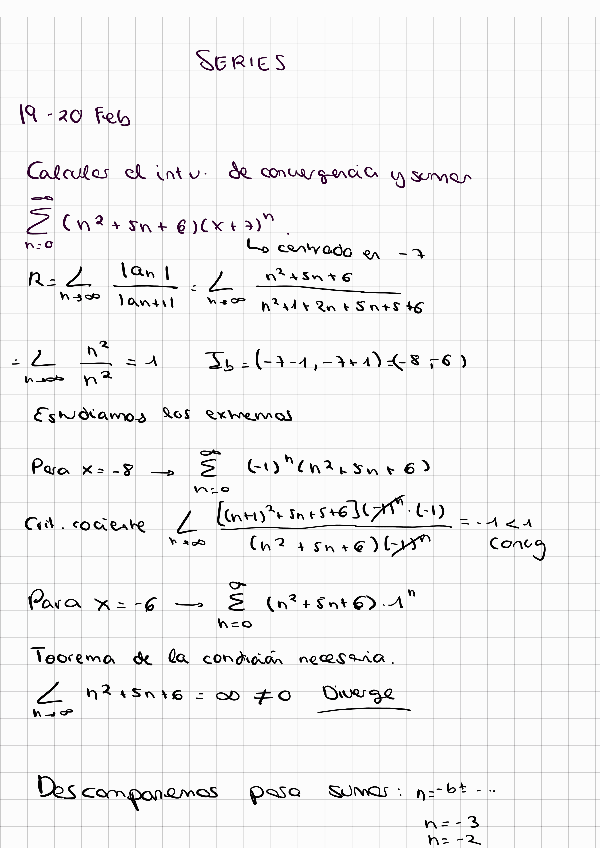 SERIES
19-20 Feb
Calcular el intv. de convergencia y sumar
∞ Σ n=0 (n² + 5n + 6)(x+7)ⁿ.
↳ centrado en -7
R = L n→∞ |an| / |an+1| = L n→∞ n²+5n+6 / n²+1+2n+5n+5+6
= L n→∞ n² / n² = 1 Ib = (-7-1, -7+1) = (-8, -6)
Estudiamos los extremos
Para x = -8 → ∞ Σ n=0 (-1)ⁿ(n² + 5n + 6)
Crit. cociente L n→∞ [(n+1)² + 5n + 5 + 6](-1)ⁿ·(-1) / (n² + 5n + 6)(-1)ⁿ = -1 < 1
Converg
Para x = -6 → ∞ Σ n=0 (n² + 5n + 6)·1ⁿ
Teorema de la condición necesaria.
L n→∞ n² + 5n + 6 = ∞ ≠ 0 Diverge
Descomponemos para sumar: n = -b ± ...
n = -3
n = -2